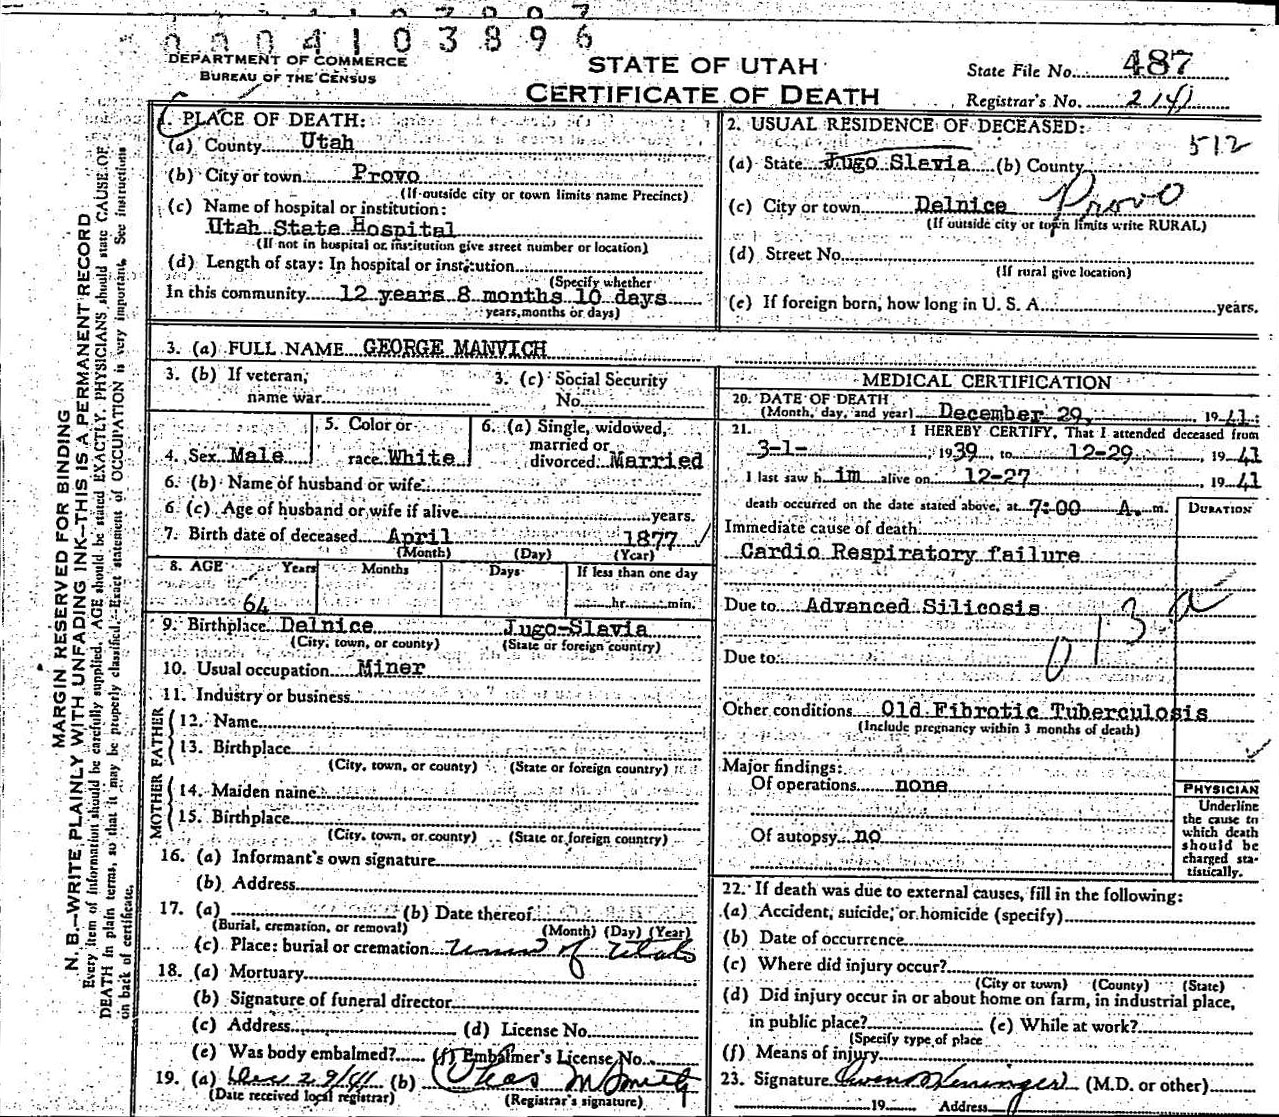 0004103896
DEPARTMENT OF COMMERCE
BUREAU OF THE CENSUS
STATE OF UTAH
CERTIFICATE OF DEATH
State File No. 487
Registrar's No. 214
MARGIN RESERVED FOR BINDING
N. B.—WRITE PLAINLY WITH UNFADING INK—THIS IS A PERMANENT RECORD
Every item of information should be carefully supplied. AGE should be stated EXACTLY. PHYSICIANS should state CAUSE OF
DEATH in plain terms, so that it may be properly classified. Exact statement of OCCUPATION is very important. See instructions
on back of certificate.
1. PLACE OF DEATH:
(a) County Utah
(b) City or town Provo
(If outside city or town limits name Precinct)
(c) Name of hospital or institution:
Utah State Hospital
(If not in hospital or institution give street number or location)
(d) Length of stay: In hospital or institution
(Specify whether
In this community 12 years 8 months 10 days
years, months or days)
2. USUAL RESIDENCE OF DECEASED:
512
(a) State Jugo Slavia (b) County
(c) City or town Delnice Provo
(If outside city or town limits write RURAL)
(d) Street No.
(If rural give location)
(e) If foreign born, how long in U. S. A. years.
3. (a) FULL NAME GEORGE MANVICH
3. (b) If veteran, name war
3. (c) Social Security No.
4. Sex Male
5. Color or race White
6. (a) Single, widowed, married or divorced Married
6. (b) Name of husband or wife
6 (c) Age of husband or wife if alive years.
7. Birth date of deceased April 1877
(Month) (Day) (Year)
8. AGE Years Months Days If less than one day
64 hr. min.
9. Birthplace Delnice Jugo-Slavia
(City, town, or county) (State or foreign country)
10. Usual occupation Miner
11. Industry or business
FATHER
12. Name
13. Birthplace
(City, town, or county) (State or foreign country)
MOTHER
14. Maiden name
15. Birthplace
(City, town, or county) (State or foreign country)
16. (a) Informant's own signature
(b) Address
17. (a) (b) Date thereof
(Burial, cremation, or removal) (Month) (Day) (Year)
(c) Place: burial or cremation Univ of Utah
18. (a) Mortuary
(b) Signature of funeral director
(c) Address (d) License No.
(e) Was body embalmed? (f) Embalmer's License No.
19. (a) Dec 29/41 (b)
(Date received local registrar) (Registrar's signature)
MEDICAL CERTIFICATION
20. DATE OF DEATH
(Month, day, and year) December 29, 1941.
21. I HEREBY CERTIFY, That I attended deceased from
3-1- , 1939, to 12-29 , 1941
I last saw him alive on 12-27 1941
death occurred on the date stated above, at 7:00 A. m.
DURATION
Immediate cause of death
Cardio Respiratory failure
Due to Advanced Silicosis
013 a
Due to
Other conditions Old Fibrotic Tuberculosis
(Include pregnancy within 3 months of death)
Major findings:
Of operations none
Of autopsy no
PHYSICIAN
Underline
the cause to
which death
should be
charged sta-
tistically.
22. If death was due to external causes, fill in the following:
(a) Accident, suicide, or homicide (specify)
(b) Date of occurrence
(c) Where did injury occur?
(City or town) (County) (State)
(d) Did injury occur in or about home on farm, in industrial place,
in public place? (e) While at work?
(Specify type of place
(f) Means of injury
23. Signature (M.D. or other)
19 Address